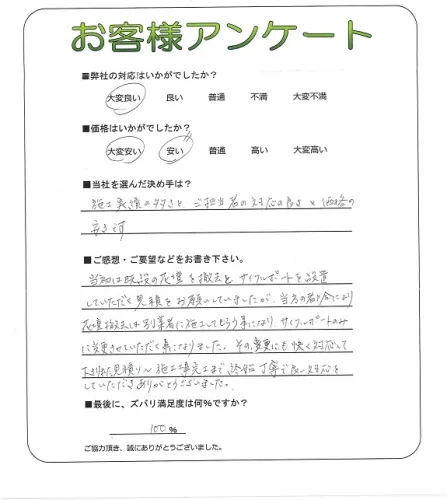 お客様アンケート
■弊社の対応はいかがでしたか?
大変良い 良い 普通 不満 大変不満
■価格はいかがでしたか?
大変安い 安い 普通 高い 大変高い
■当社を選んだ決め手は?
施工実績の多さと、ご担当者の対応の良さと価格の
安さです
■ご感想・ご要望などをお書き下さい。
当初は既設の花壇を撤去とサイクルポートを設置
していただく見積をお願いしていましたが、当方の都合により
花壇撤去は別業者に施工してもらう事になり、サイクルポートのみ
に変更させていただく事になりました。その変更にも快く対応して
下さり見積り〜施工完工まで終始丁寧で良い対応を
していただきありがとうございました。
■最後に、ズバリ満足度は何%ですか?
100%
ご協力頂き、誠にありがとうございました。